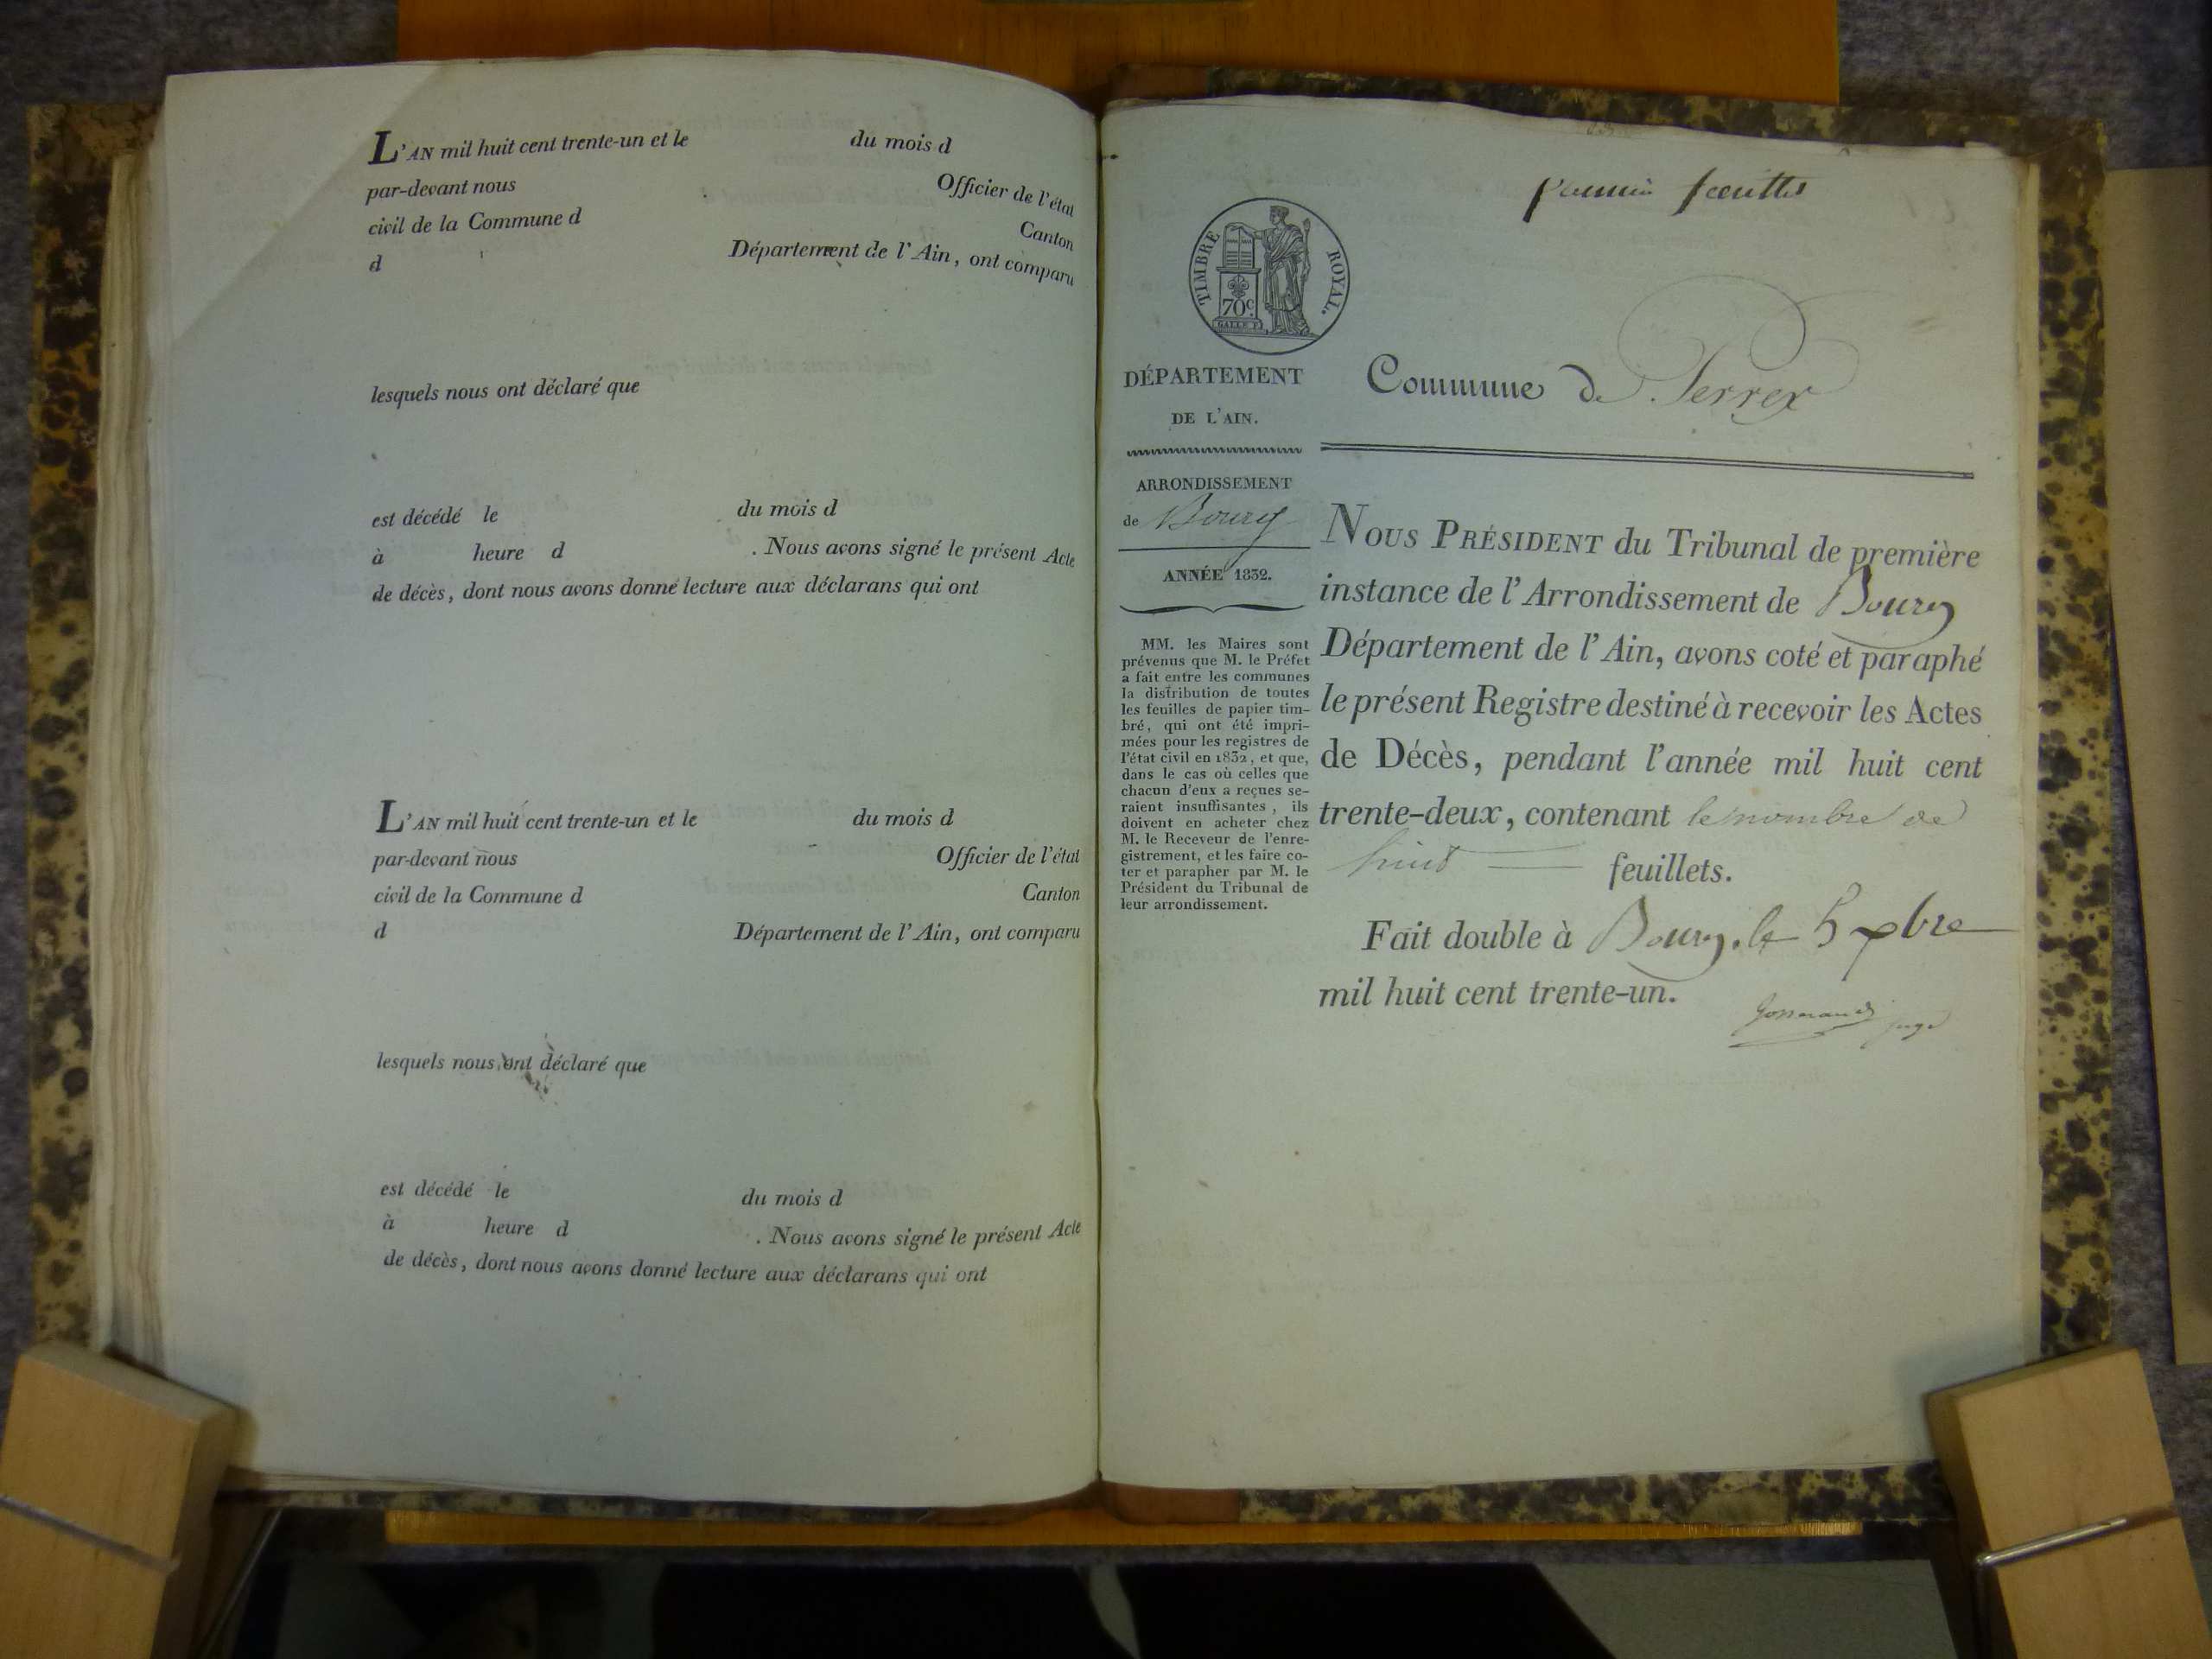 L'AN mil huit cent trente-un et le du mois d
par-devant nous Officier de l'état
civil de la Commune d Canton
d Département de l'Ain, ont comparu
lesquels nous ont déclaré que
est décédé le du mois d
à heure d . Nous avons signé le présent Acte
de décès, dont nous avons donné lecture aux déclarans qui ont
L'AN mil huit cent trente-un et le du mois d
par-devant nous Officier de l'état
civil de la Commune d Canton
d Département de l'Ain, ont comparu
lesquels nous ont déclaré que
est décédé le du mois d
à heure d . Nous avons signé le présent Acte
de décès, dont nous avons donné lecture aux déclarans qui ont
feuillet
TIMBRE ROYAL.
70c.
GALLE F.
DÉPARTEMENT
DE L'AIN.
ARRONDISSEMENT
de Bourg
ANNÉE 1832.
MM. les Maires sont
prévenus que M. le Préfet
a fait entre les communes
la distribution de toutes
les feuilles de papier tim-
bré, qui ont été impri-
mées pour les registres de
l'état civil en 1832, et que,
dans le cas où celles que
chacun d'eux a reçues se-
raient insuffisantes, ils
doivent en acheter chez
M. le Receveur de l'enre-
gistrement, et les faire co-
ter et parapher par M. le
Président du Tribunal de
leur arrondissement.
Commune de Perrex
NOUS PRÉSIDENT du Tribunal de première
instance de l'Arrondissement de Bourg
Département de l'Ain, avons coté et paraphé
le présent Registre destiné à recevoir les Actes
de Décès, pendant l'année mil huit cent
trente-deux, contenant le nombre de
huit feuillets.
Fait double à Bourg, le 5 xbre
mil huit cent trente-un.
juge